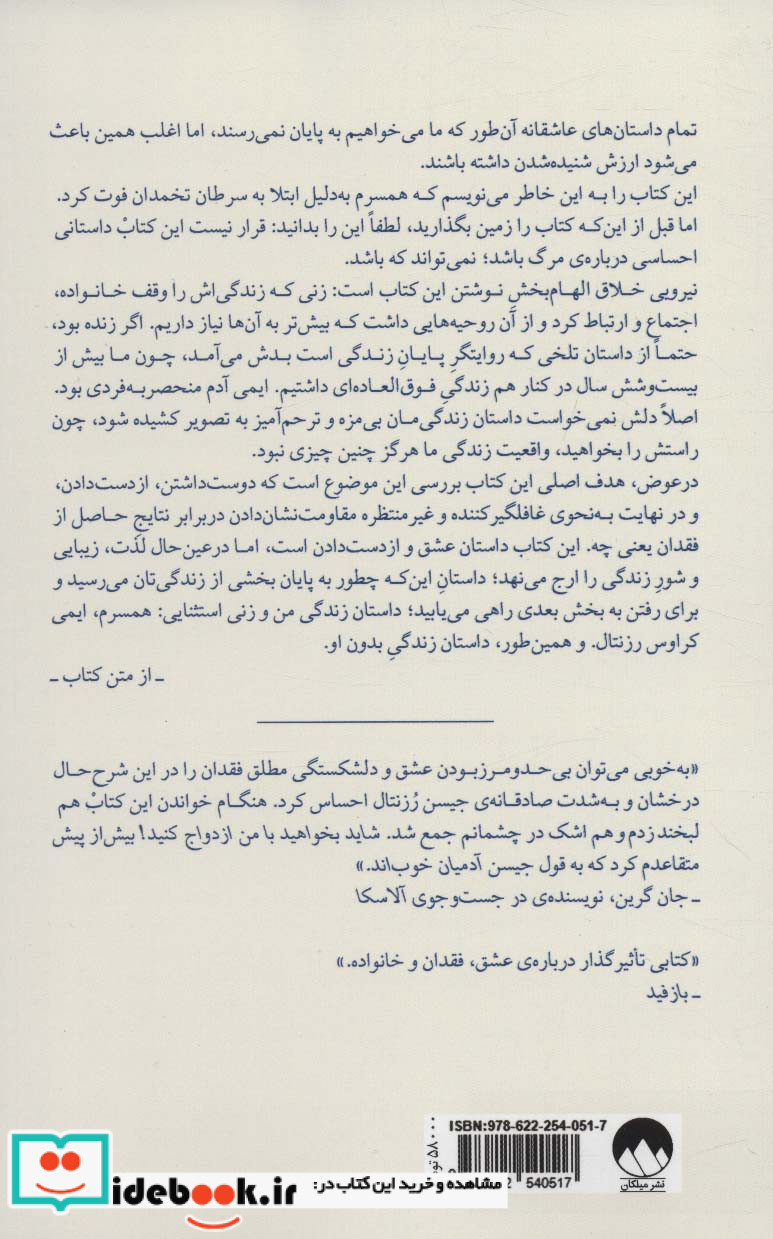 تمام داستان‌های عاشقانه آن‌طور که ما می‌خواهیم به پایان نمی‌رسند، اما اغلب همین باعث
می‌شود ارزش شنیده‌شدن داشته باشند.
این کتاب را به این خاطر می‌نویسم که همسرم به‌دلیل ابتلا به سرطان تخمدان فوت کرد.
اما قبل از این‌که کتاب را زمین بگذارید، لطفاً این را بدانید: قرار نیست این کتابْ داستانی
احساسی درباره‌ی مرگ باشد؛ نمی‌تواند که باشد.
نیرویی خلاق الهام‌بخشِ نوشتن این کتاب است: زنی که زندگی‌اش را وقف خانواده،
اجتماع و ارتباط کرد و از آن روحیه‌هایی داشت که بیش‌تر به آن‌ها نیاز داریم. اگر زنده بود،
حتماً از داستان تلخی که روایتگرِ پایانِ زندگی است بدش می‌آمد، چون ما بیش از
بیست‌وشش سال در کنار هم زندگیِ فوق‌العاده‌ای داشتیم. ایمی آدم منحصربه‌فردی بود.
اصلاً دلش نمی‌خواست داستان زندگی‌مان بی‌مزه و ترحم‌آمیز به تصویر کشیده شود، چون
راستش را بخواهید، واقعیت زندگی ما هرگز چنین چیزی نبود.
درعوض، هدف اصلی این کتاب بررسی این موضوع است که دوست‌داشتن، ازدست‌دادن،
و در نهایت به‌نحوی غافلگیرکننده و غیرمنتظره مقاومت‌نشان‌دادن دربرابر نتایجِ حاصل از
فقدان یعنی چه. این کتاب داستان عشق و ازدست‌دادن است، اما درعین‌حال لذت، زیبایی
و شورِ زندگی را ارج می‌نهد؛ داستانِ این‌که چطور به پایان بخشی از زندگی‌تان می‌رسید و
برای رفتن به بخش بعدی راهی می‌یابید؛ داستان زندگی من و زنی استثنایی: همسرم، ایمی
کراوس رزنتال. و همین‌طور، داستان زندگیِ بدون او.
ـ از متن کتاب ـ
«به‌خوبی می‌توان بی‌حدومرزبودن عشق و دلشکستگی مطلق فقدان را در این شرح‌حال
درخشان و به‌شدت صادقانه‌ی جیسن رُزنتال احساس کرد. هنگام خواندن این کتابْ هم
لبخند زدم و هم اشک در چشمانم جمع شد. شاید بخواهید با من ازدواج کنید! بیش‌از پیش
متقاعدم کرد که به قول جیسن آدمیان خوب‌اند.»
ـ جان گرین، نویسنده‌ی در جست‌وجوی آلاسکا
«کتابی تأثیرگذار درباره‌ی عشق، فقدان و خانواده.»
ـ بازفید
ISBN:978-622-254-051-7
۵۸۰۰۰
2 540517
نشر میلکان
مشاهده و خرید این کتاب در:
idebook.ir